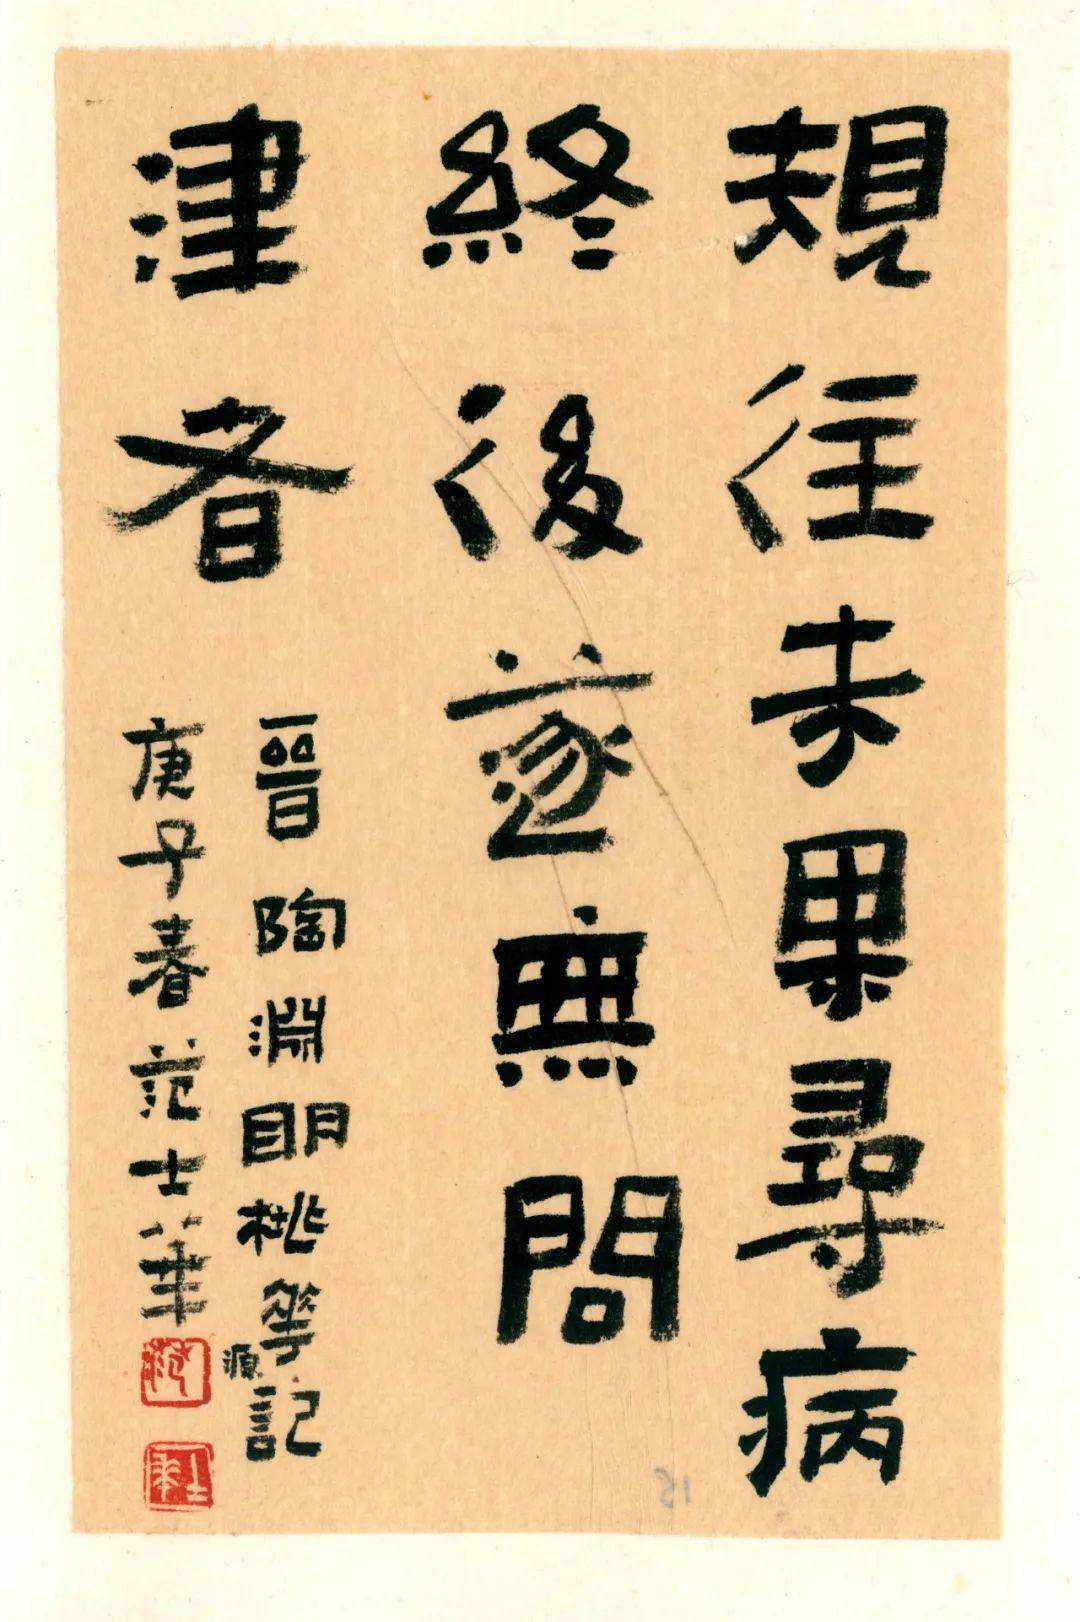 規往未果尋病
終後遂無問
津者
晉陶淵明桃華源記
庚子春范士華
范